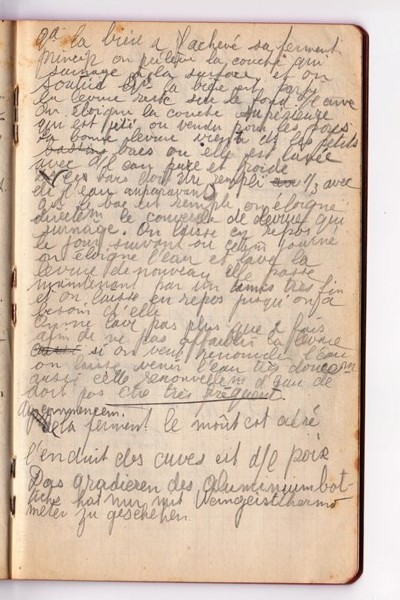 qd la bière a achevé sa ferment
princip on enlève la couche qui
surnage à la surface, et on
soutire et la bière est
la levure reste sur le fond d/e cuve
on éloigne la couche supérieure
qui est petit ou vendu pour les
la bonne levure vient ds les petits
bacs ou elle est lavée
avec d/l'eau pure et froide
Ces bacs doiv être rempli 1/3 avec
d/l'eau auparavant
qd le bac est rempl on éloigne
directem le couvercle de levure qui
surnage. On laisse en repos
le jour suivant ou
on éloigne l'eau et lave la
levure de nouveau elle passe
maintenant par un tamis très fin
et on laisse en repos jusqu'on a
besoin d'elle
On ne lave pas plus que 2 fois
afin de ne pas affaiblir la levure
si on veut renouveler l'eau
on laisse venir l'eau très doucem
aussi cette renouvellem d'eau ne
doit pas être très fréquent.
Au commencem.
de la ferment le moût est aéré
l'enduit des cuves est d/e poix
Das gradieren des Aluminiumbot-
tiche hat nur mit Weingeistthermo
meter zu geschehen